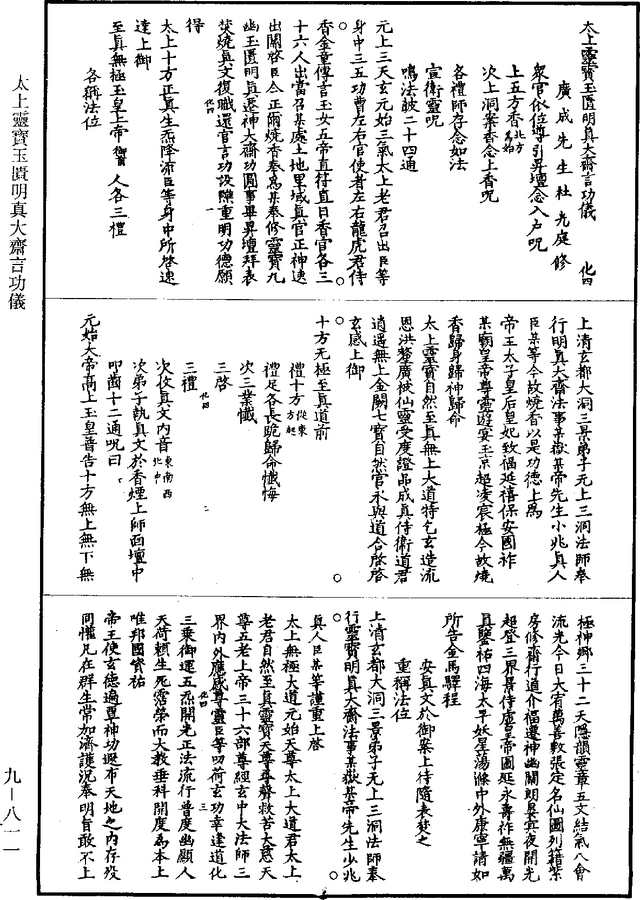 太上靈寶玉匱明真大齋言功儀
九—八一一
太上靈寶玉匱明真大齋言功儀 化四
廣成先生杜光庭修
眾官依位導引昇壇念入戶呪
上五方香北方為始
次上洞案香念上香呪
各禮師存念如法
宣衛靈呪
鳴法鼓二十四通
元上三天玄元始三氣太上老君召出臣等
身中三五功曹左右官使者左右龍虎君侍
香金童傳言玉女五帝直符直日香官各三
十六人出當召某處土地里域真官正神速
出關啓臣今正爾燒香奉為某奉修靈寶九
幽玉匱明真還神大齋功圓事畢昇壇拜表
焚燒真文復職還官言功設醮重明功德願
化四 一
得
太上十方正真生炁降流臣等身中所啓速
達上御
至真無極玉皇上帝御前人各三禮
各稱法位
上清玄都大洞三景弟子无上三洞法師奉
行明真大齋法事某嶽某帝先生小兆真人
臣某等今故燒香以是功德上為
帝王太子皇后皇妃致福延禧保安國祚
某廟皇帝尊靈遊宴玉京超凌宸極今故燒
香歸身歸神歸命
太上靈寶自然至真無上大道特乞玄造流
恩洪慈廣被仙靈受度證品成真侍衛道君
逍遙無上金闕七寶自然宮永與道合啓
玄感上御
十方无極至真道前
禮十方從東方起
禮足各長跪歸命懺悔
次三業懺
三啓
化四 二
三禮
次收真文內音東南西北中
次弟子執真文於香煙上師面壇中
叩齒十二通呪曰
元始大帝高上玉皇普告十方無上無下無
極神鄉三十二天隱韻靈章五文結氣八會
流光今日大宥萬善敷張定名仙圖列籍紫
房修齋行道介福遷神幽關朗晏冥夜開光
超登三界景侍虛皇帝圖延永壽祚無疆萬
真鑒祐四海太平妖星蕩滌中外康寧請如
所告金馬驛程
安真文於御案上待隨表焚之
重稱法位
上清玄都大洞三景弟子无上三洞法師奉
行靈寶明真大齋法事某嶽某帝先生少兆
真人臣某等謹重上啓
太上無極大道元始天尊太上大道君太上
老君自然至真靈寶天尊尋聲救苦大慈天
尊五老上帝三十六部尊經玄中大法師三
界內外應感尊靈臣等叨荷玄功幸逢道化
化四 三
三乘御運五炁開光正法流行普度幽顯人
天荷賴生死霑榮而大教垂科開度為本上
唯邦國資祐
帝王使玄德遍覃神功遐布天地之內存歿
同懽凡在群生常加濟護況奉明旨敢不上